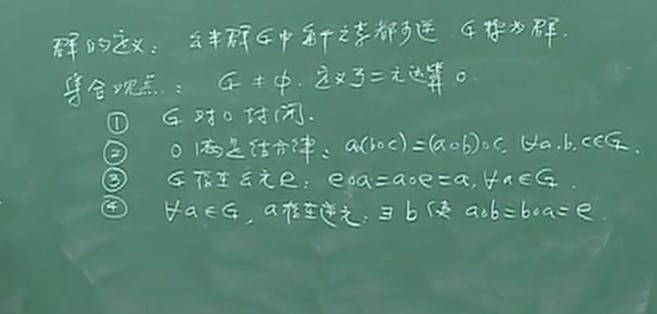 群的定义：幺半群G中每个元素都可逆，G称为群.
集合观点：G≠φ. 定义了二元运算o.
① G对o封闭.
② o满足结合律：a(boc)=(aob)oc, ∀a,b,c∈G.
③ G存在幺元e：eoa=aoe=a, ∀a∈G.
④ ∀a∈G, a存在逆元：∃b使aob=boa=e.